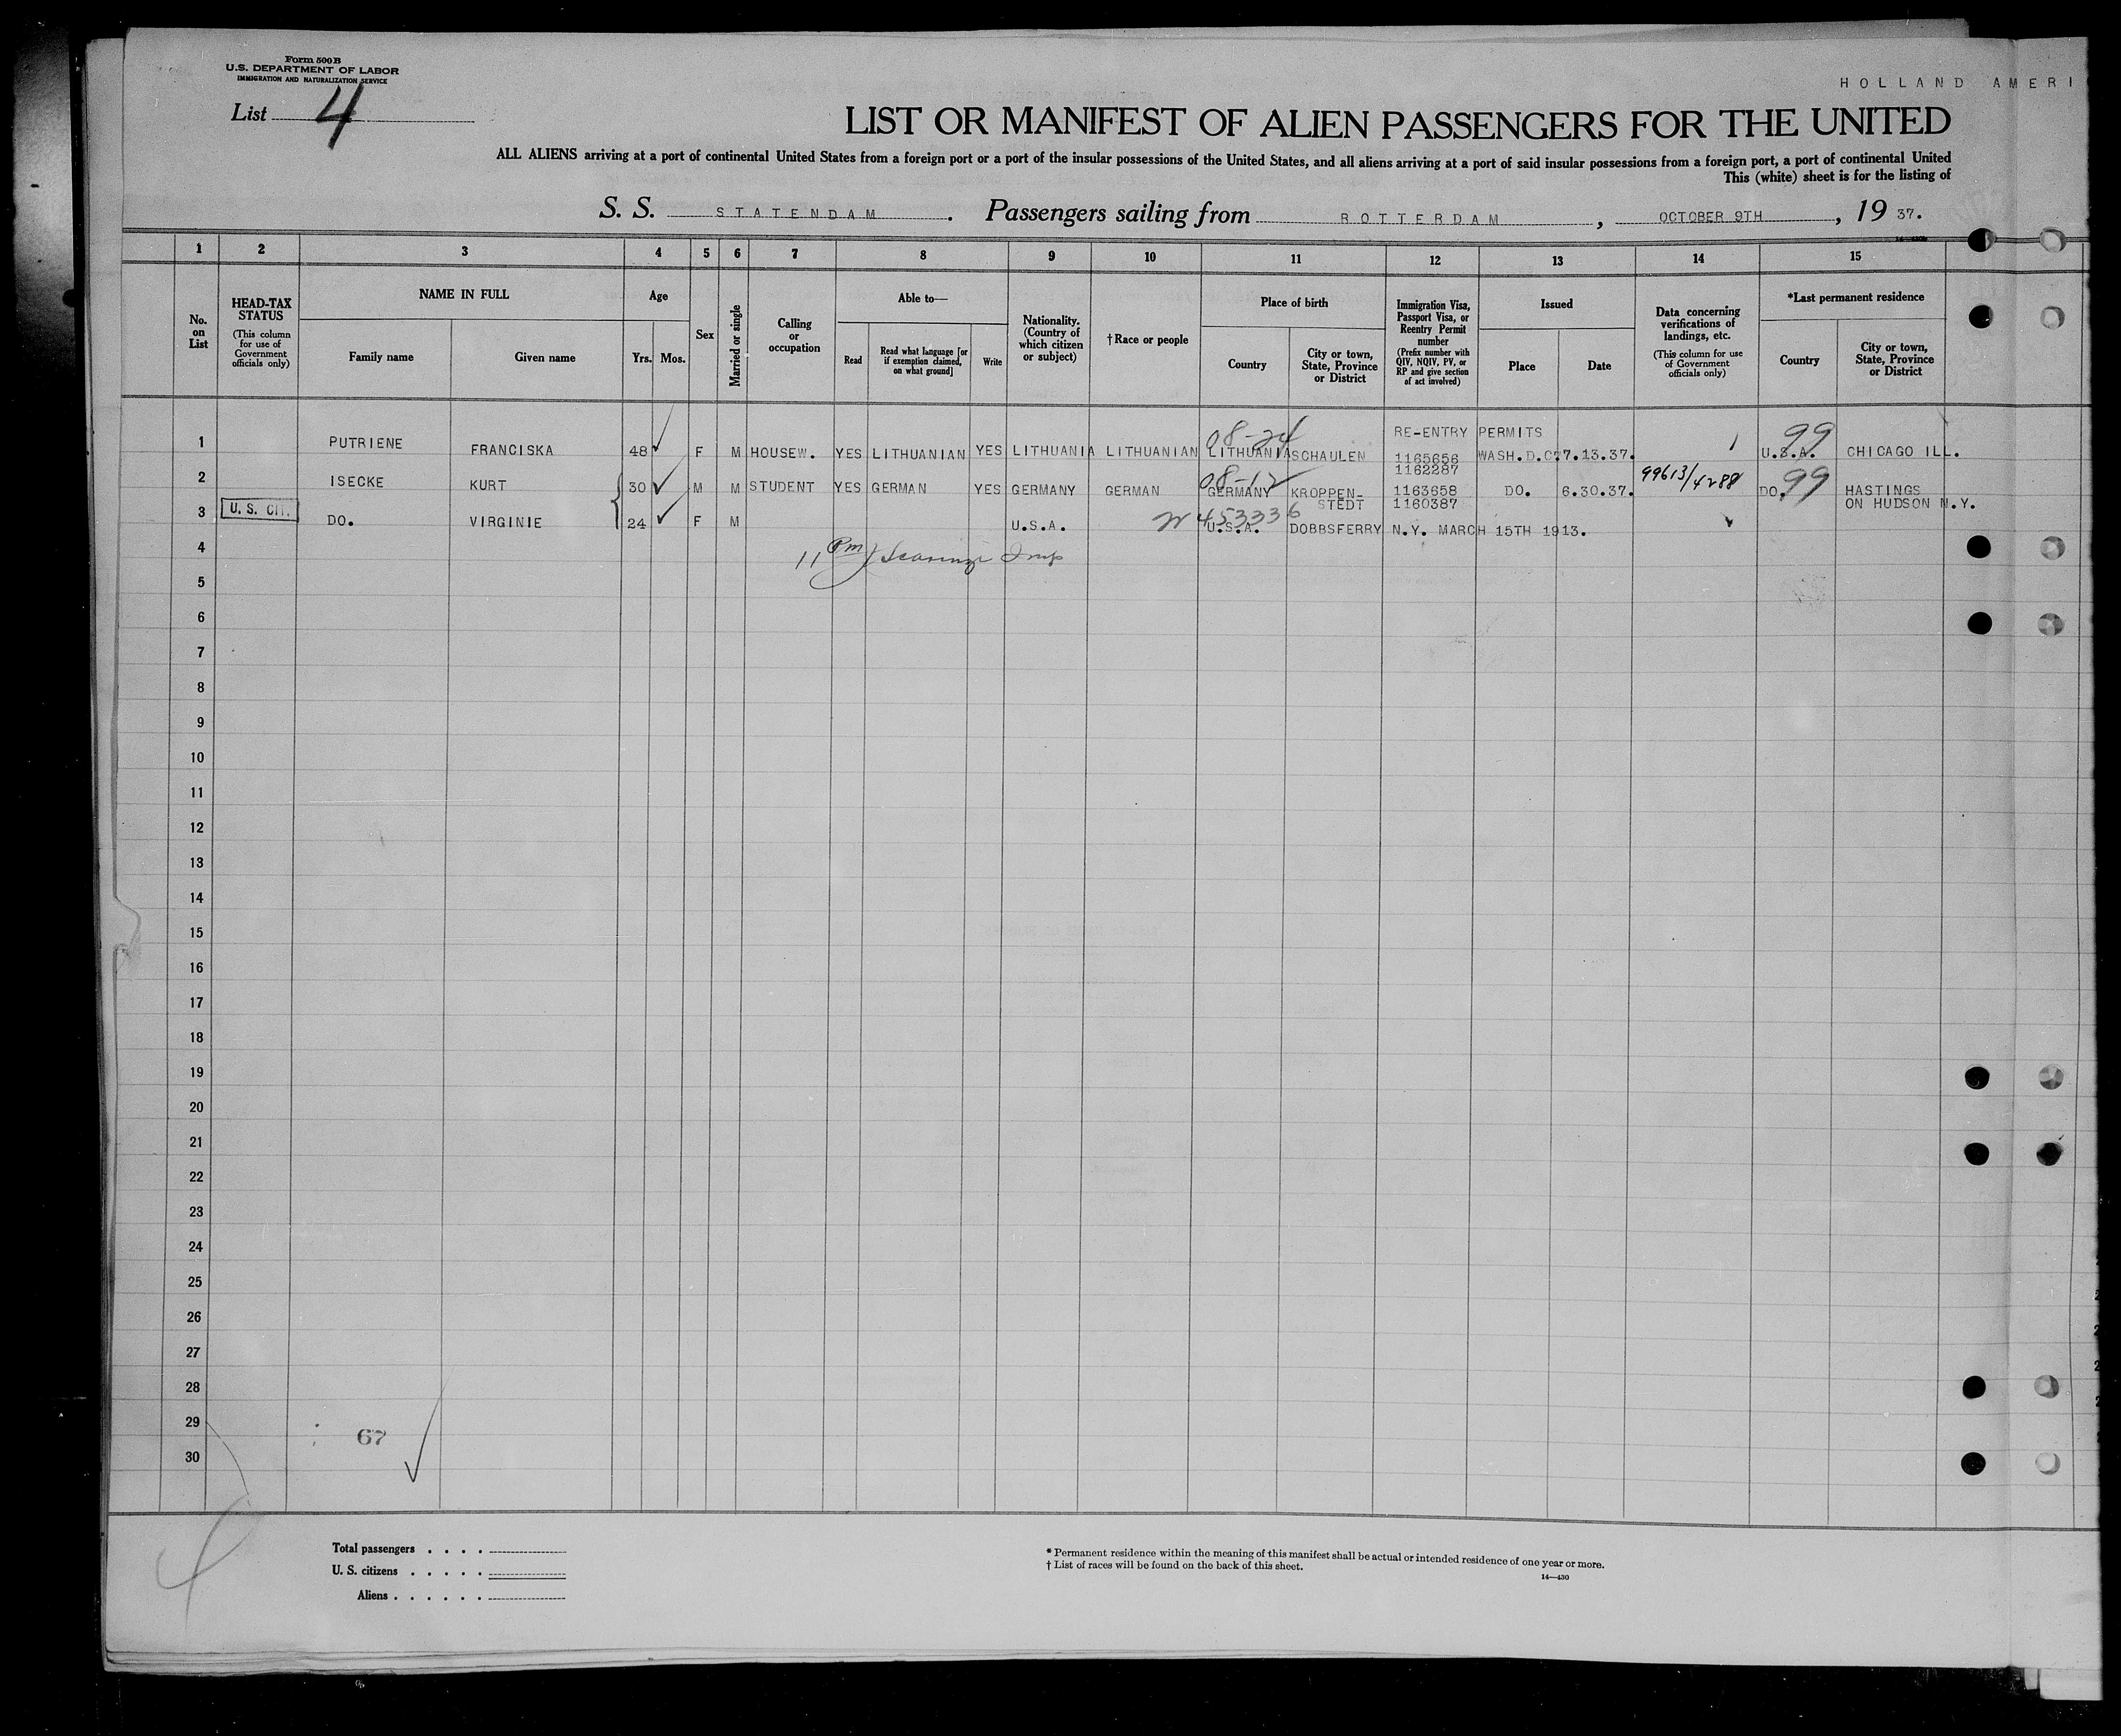 Form 500 B
U.S. DEPARTMENT OF LABOR
IMMIGRATION AND NATURALIZATION SERVICE
HOLLAND AMERI
List 4
LIST OR MANIFEST OF ALIEN PASSENGERS FOR THE UNITED
ALL ALIENS arriving at a port of continental United States from a foreign port or a port of the insular possessions of the United States, and all aliens arriving at a port of said insular possessions from a foreign port, a port of continental United
This (white) sheet is for the listing of
S. S. STATENDAM. Passengers sailing from ROTTERDAM, OCTOBER 9TH, 19 37.
1 2 3 4 5 6 7 8 9 10 11 12 13 14 15
No. on List
HEAD-TAX STATUS
(This column for use of Government officials only)
NAME IN FULL
Family name
Given name
Age
Yrs. Mos.
Sex
Married or single
Calling or occupation
Able to—
Read
Read what language [or if exemption claimed, on what ground]
Write
Nationality. (Country of which citizen or subject)
†Race or people
Place of birth
Country
City or town, State, Province or District
Immigration Visa, Passport Visa, or Reentry Permit number
(Prefix number with QIV, NQIV, PV, or RP and give section of act involved)
Issued
Place
Date
Data concerning verifications of landings, etc.
(This column for use of Government officials only)
*Last permanent residence
Country
City or town, State, Province or District
RE-ENTRY PERMITS
08-24 99
1 PUTRIENE FRANCISKA 48 F M HOUSEW. YES LITHUANIAN YES LITHUANIA LITHUANIAN LITHUANIA SCHAULEN 1165656 WASH.D.C. 7.13.37. U.S.A. CHICAGO ILL.
1162287
08-12 99613/4288 99
2 ISECKE KURT 30 M M STUDENT YES GERMAN YES GERMANY GERMAN GERMANY KROPPEN- 1163658 DO. 6.30.37. DO. HASTINGS
STEDT 1160387 ON HUDSON N.Y.
453336
3 U. S. CIT. DO. VIRGINIE 24 F M U.S.A. U.S.A. DOBBSFERRY N.Y. MARCH 15TH 1913.
4
11 Pm Insp
5
6
7
8
9
10
11
12
13
14
15
16
17
18
19
20
21
22
23
24
25
26
27
28
29
67
30
4
Total passengers
U. S. citizens
Aliens
* Permanent residence within the meaning of this manifest shall be actual or intended residence of one year or more.
† List of races will be found on the back of this sheet.
14—430